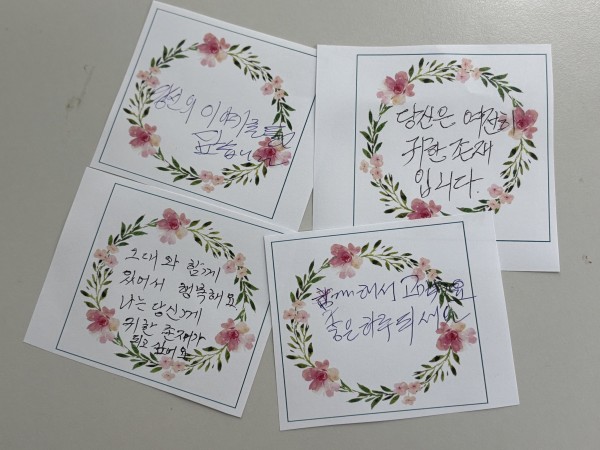 당신의 이야기를 듣고
싶습니다
당신은 여전히
귀한 존재
입니다.
그대와 함께
있어서 행복해요
나는 당신께
귀한 존재가
되고 싶어요
함께해서 고마워요
좋은하루 되세요